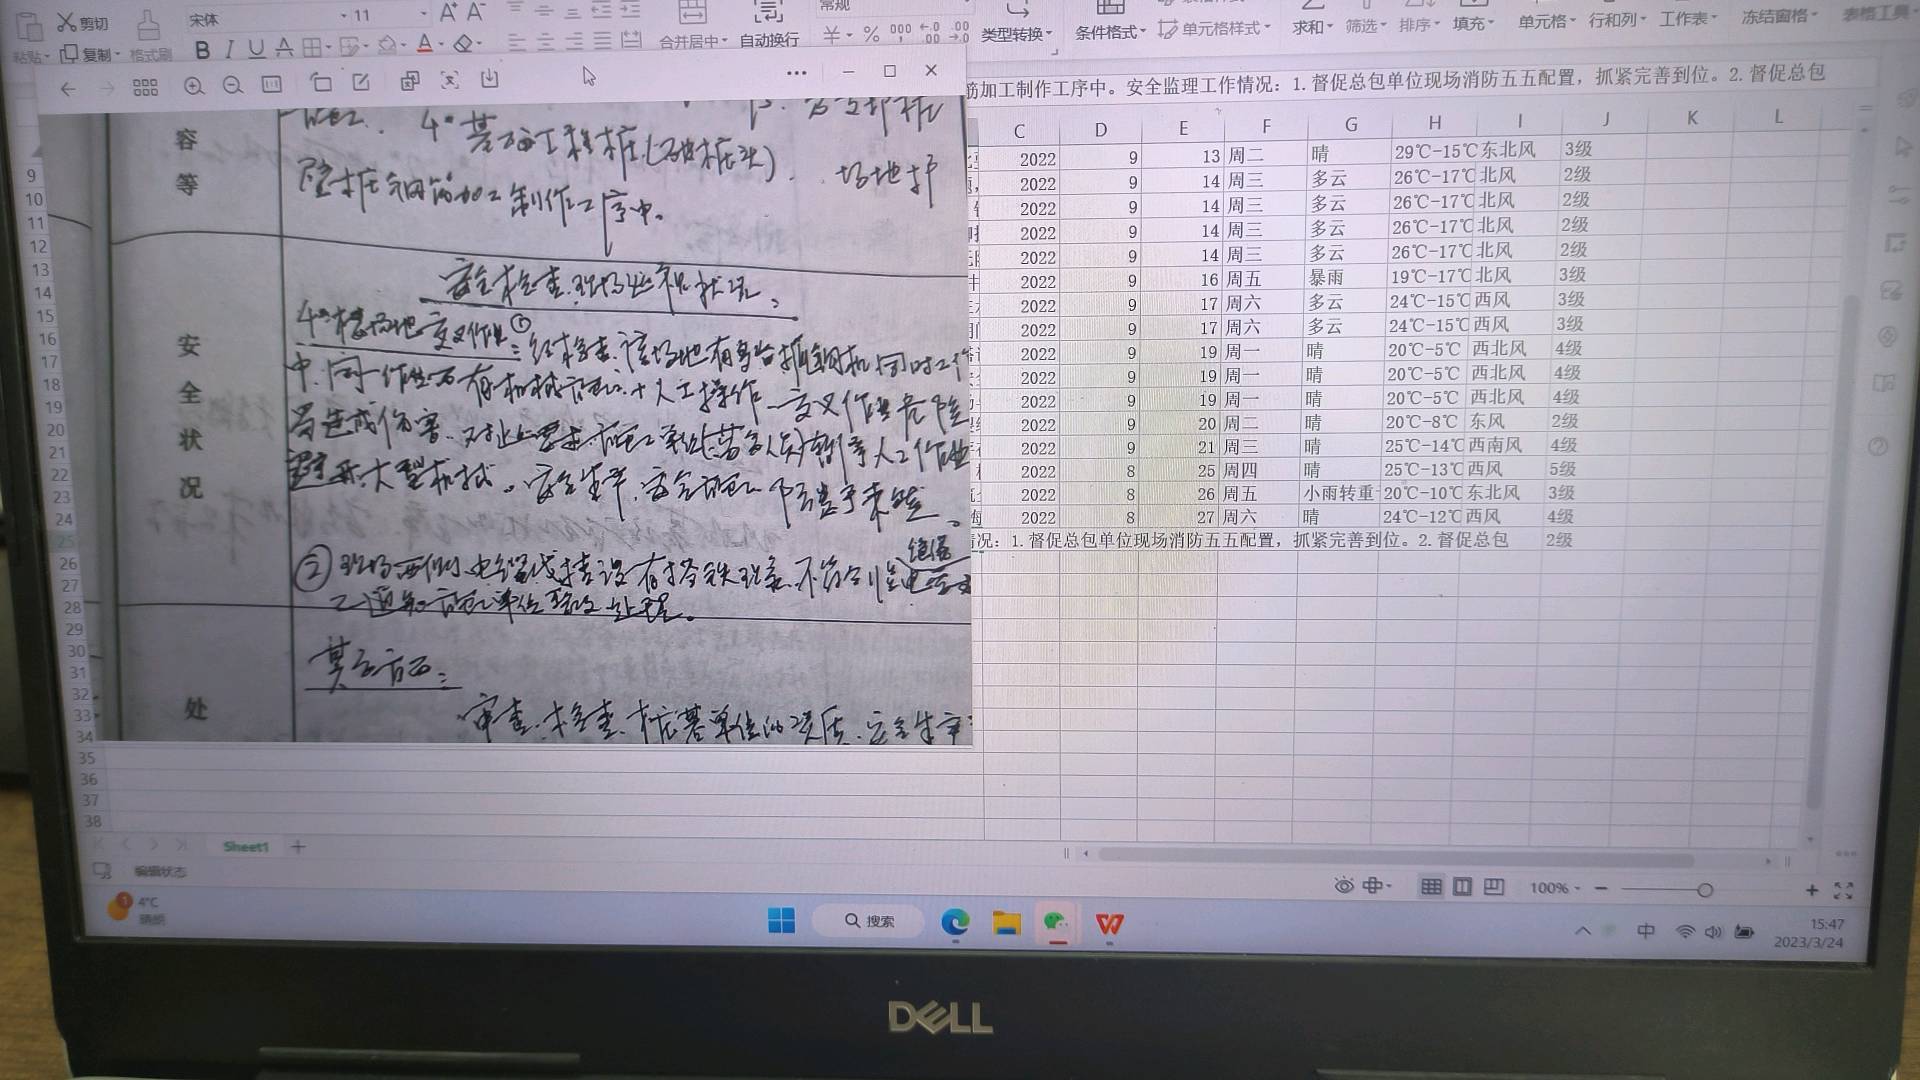 剪切 宋体 11 A+ A- 常规
粘贴 复制 格式刷 B I U A 合并居中 自动换行 ¥ % 000 类型转换 条件格式 单元格样式 求和 筛选 排序 填充 单元格 行和列 工作表 冻结窗格 表格工具
筋加工制作工序中。安全监理工作情况：1.督促总包单位现场消防五五配置，抓紧完善到位。2.督促总包
C D E F G H I J K L
2022 9 13 周二 晴 29℃-15℃ 东北风 3级
2022 9 14 周三 多云 26℃-17℃ 北风 2级
2022 9 14 周三 多云 26℃-17℃ 北风 2级
2022 9 14 周三 多云 26℃-17℃ 北风 2级
2022 9 14 周三 多云 26℃-17℃ 北风 2级
2022 9 16 周五 暴雨 19℃-17℃ 北风 3级
2022 9 17 周六 多云 24℃-15℃ 西风 3级
2022 9 17 周六 多云 24℃-15℃ 西风 3级
2022 9 19 周一 晴 20℃-5℃ 西北风 4级
2022 9 19 周一 晴 20℃-5℃ 西北风 4级
2022 9 19 周一 晴 20℃-5℃ 西北风 4级
2022 9 20 周二 晴 20℃-8℃ 东风 2级
2022 9 21 周三 晴 25℃-14℃ 西南风 4级
2022 8 25 周四 晴 25℃-13℃ 西风 5级
2022 8 26 周五 小雨转重 20℃-10℃ 东北风 3级
2022 8 27 周六 晴 24℃-12℃ 西风 4级
情况：1.督促总包单位现场消防五五配置，抓紧完善到位。2.督促总包 2级
9
10
11
12
13
14
15
16
17
18
19
20
21
22
23
24
25
26
27
28
29
30
31
32
33
34
35
36
37
38
容
等
4#基础工程桩（破桩头）。场地护
壁桩钢筋加工制作工序中。
安全状况
安全检查、现场巡视状况：
4#楼场地交叉作业：①经检查、该场地有多台抓钢机同时工作
中、同一作业面有机械施工、十人工操作、交叉作业危险
易造成伤害、对此要求施工单位暂停人工作业
避开大型机械。安全生产、安全施工防患于未然。
②现场西侧、电缆线挂设有搭铁现象、不符合 绝缘
已通知施工单位整改处理。
处
其它方面：
审查、检查、桩基单位的资质、安全生产
Sheet1 +
编辑状态 100%
1 4℃
晴朗
搜索
中
15:47
2023/3/24
DELL